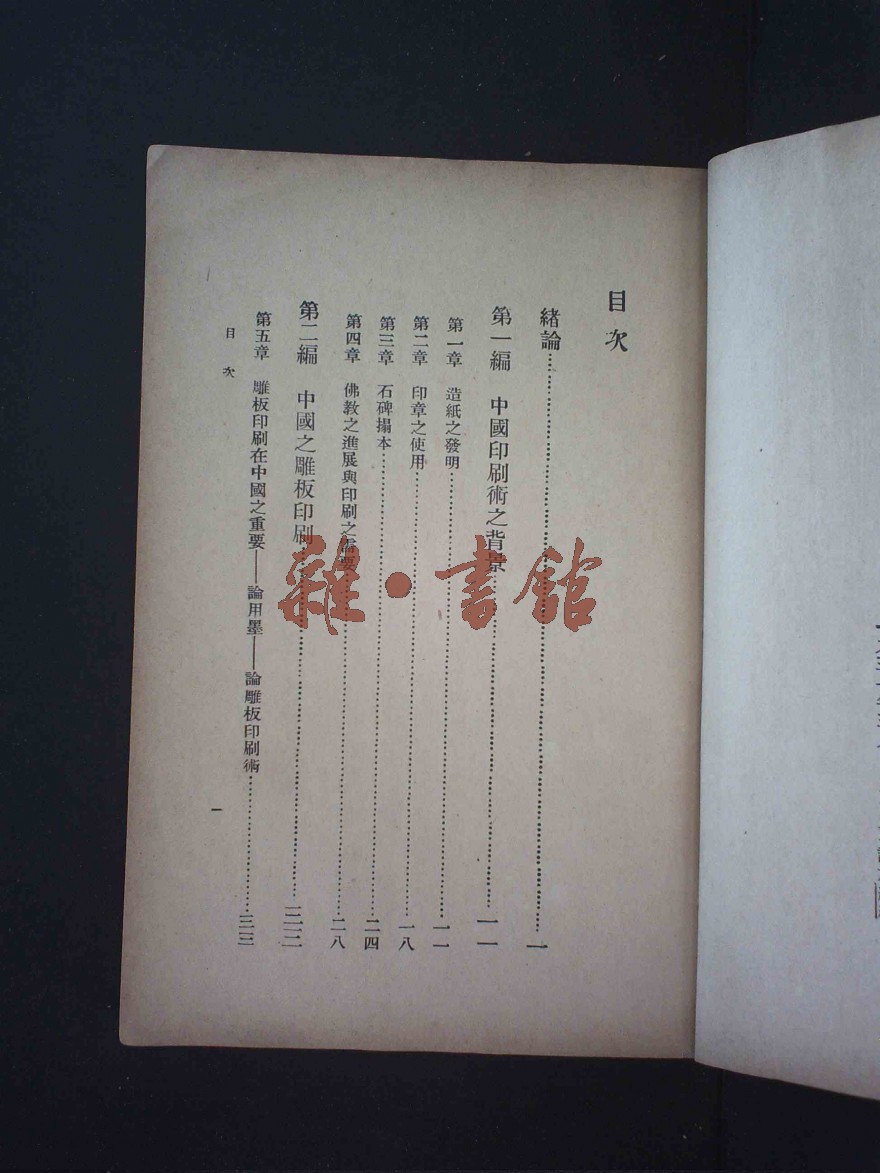 目次
緒論……一
第一編　中國印刷術之背景……一一
第一章　造紙之發明……一一
第二章　印章之使用……一八
第三章　石碑搨本……二四
第四章　佛教之進展與印刷之需要……二八
第二編　中國之雕板印刷……三三
第五章　雕板印刷在中國之重要——論用墨——論雕板印刷術……三三
目次
一
雜·書館